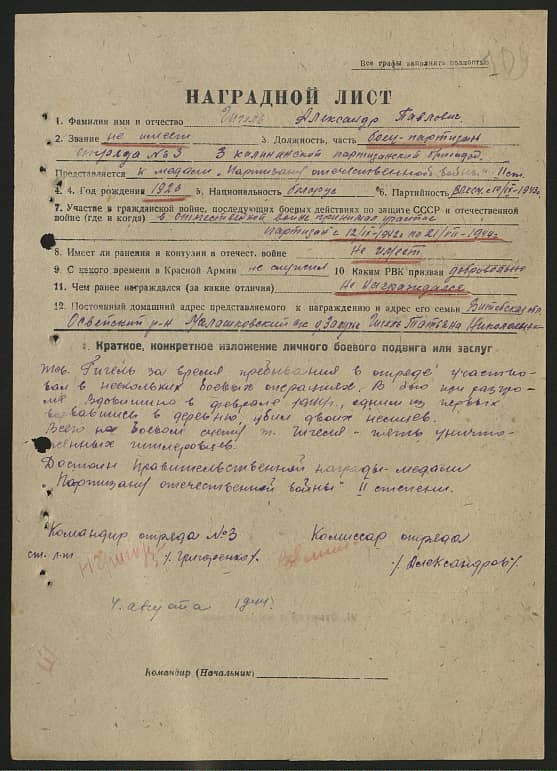 Все графы заполнить полностью
109
НАГРАДНОЙ ЛИСТ
1. Фамилия имя и отчество Гигель Александр Павлович.
2. Звание не имеет 3. Должность, часть боец-партизан
отряда №3 3 калининской партизанской бригады.
Представляется к медали "Партизану отечественной войны" II ст.
4. 4. Год рождения 1926 5. Национальность белорус 6. Партийность
7. Участие в гражданской войне, последующих боевых действиях по защите СССР и отечественной
войне (где и когда) в отечественной войне принимал участие
партизан с 12/ 1942г по 21/VII-1944г.
8. Имеет ли ранения и контузии в отечест. войне не имеет
9. С какого времени в Красной Армии не служил 10 Каким РВК призван добровольно
11. Чем ранее награждался (за какие отличия) не награждался
12. Постоянный домашний адрес представляемого к награждению и адрес его семьи Витебская обл.
Освейский р-н Гигель Татьяна Николаевна
1. Краткое, конкретное изложение личного боевого подвига или заслуг
Тов. Гигель за время пребывания в отряде участво-
вал в нескольких боевых операциях. В бою при разгро-
ме в феврале 1944г., одним из первых
ворвавшись в деревню, убил двоих немцев.
Всего на боевом счету т. Гигеля - пять уничто-
женных гитлеровцев.
Достоин Правительственной награды - медали
"Партизану отечественной войны" II степени.
Командир отряда №3 Комиссар отряда
ст. л-т /Григоренко/. /Александров/.
4 августа 1944г.
Командир (Начальник)